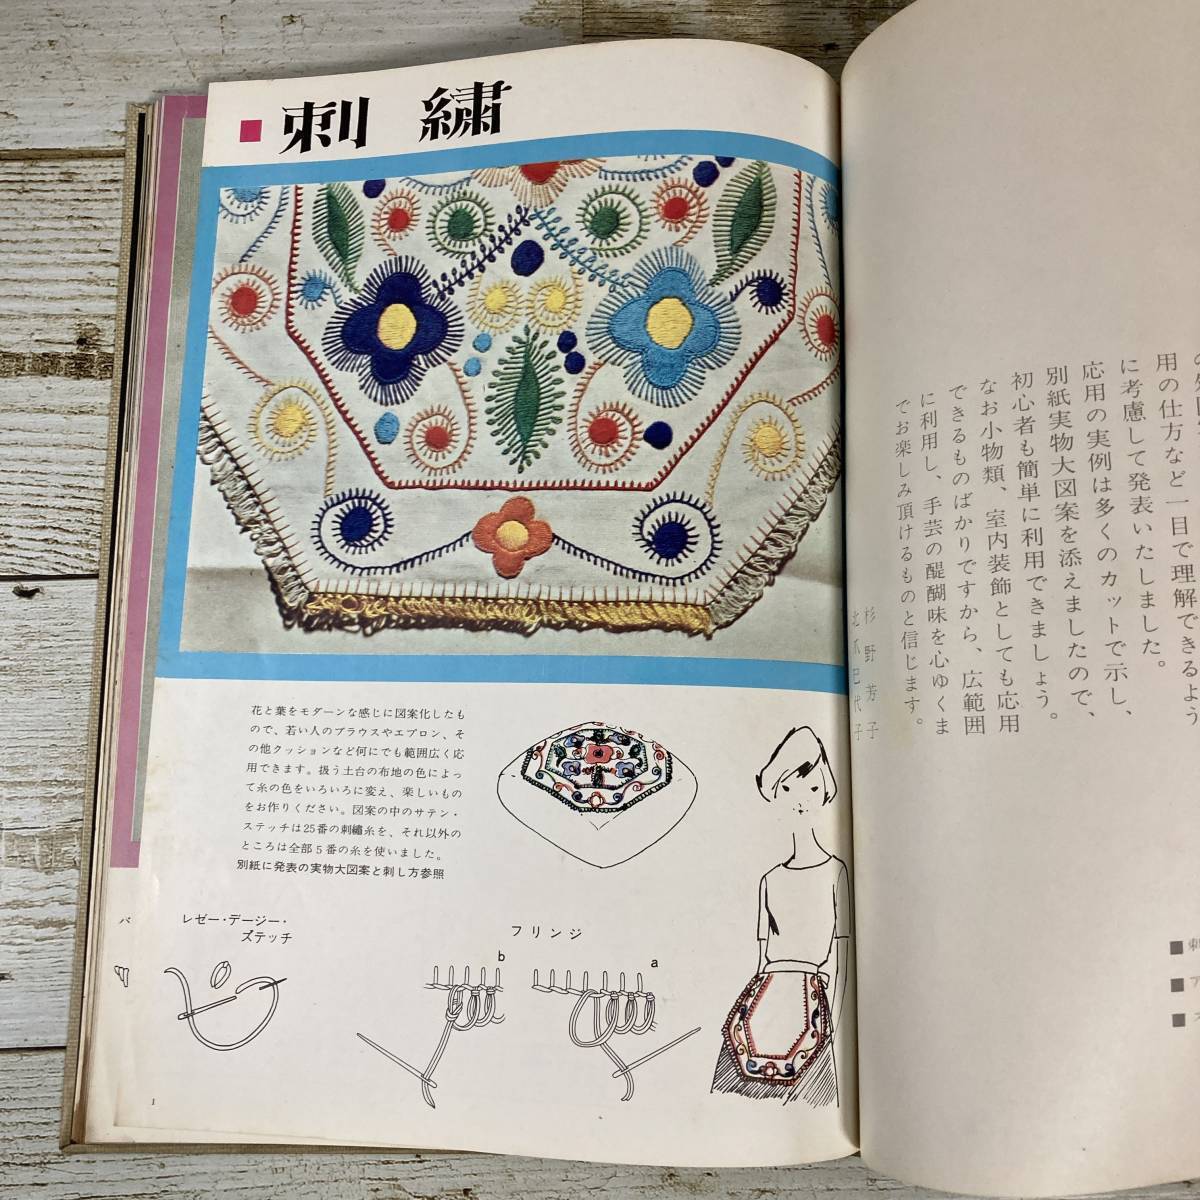 刺繍
花と葉をモダーンな感じに図案化したも
ので、若い人のブラウスやエプロン、そ
の他クッションなど何にでも範囲広く応
用できます。扱う土台の布地の色によっ
て糸の色をいろいろに変え、楽しいもの
をお作りください。図案の中のサテン・
ステッチは25番の刺繡糸を、それ以外の
ところは全部5番の糸を使いました。
別紙に発表の実物大図案と刺し方参照
レゼー・デージー・
ステッチ
フリンジ
b
a
1
バ
用の仕方など一目で理解できるよう
に考慮して発表いたしました。
応用の実例は多くのカットで示し、
別紙実物大図案を添えましたので、
初心者も簡単に利用できましょう。
なお小物類、室内装飾としても応用
できるものばかりですから、広範囲
に利用し、手芸の醍醐味を心ゆくま
でお楽しみ頂けるものと信じます。
杉野芳子
北爪巳代子
■刺
■ア
■ス